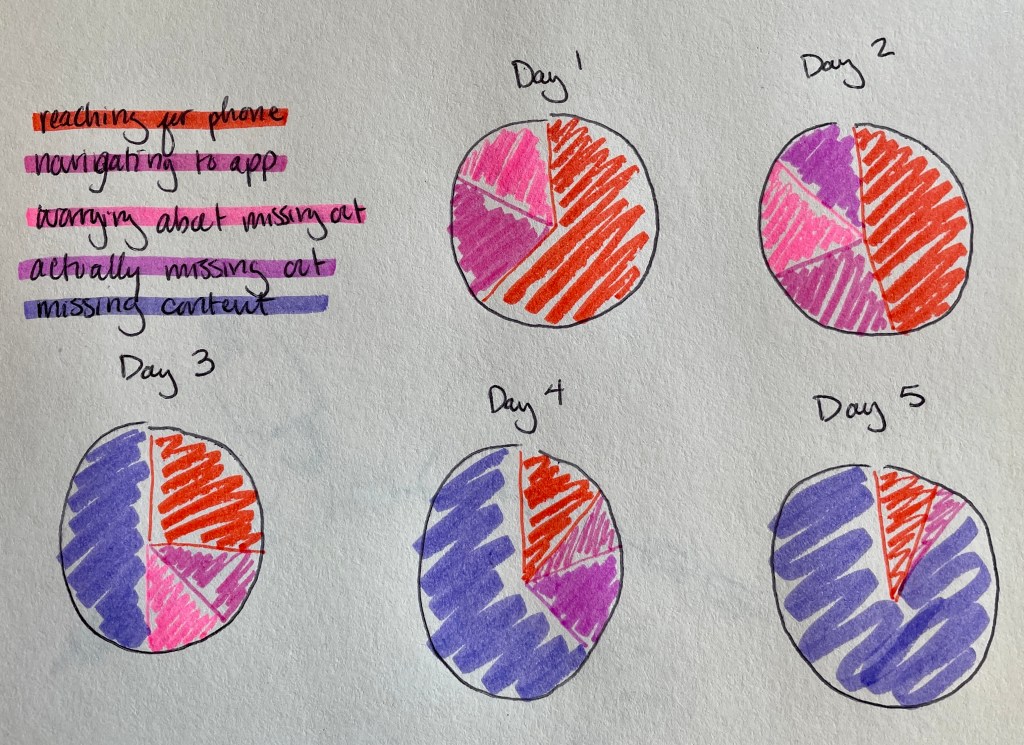 Day 1
Day 2
reaching for phone
navigating to app
worrying about missing out
actually missing out
missing content
Day 3
Day 4
Day 5